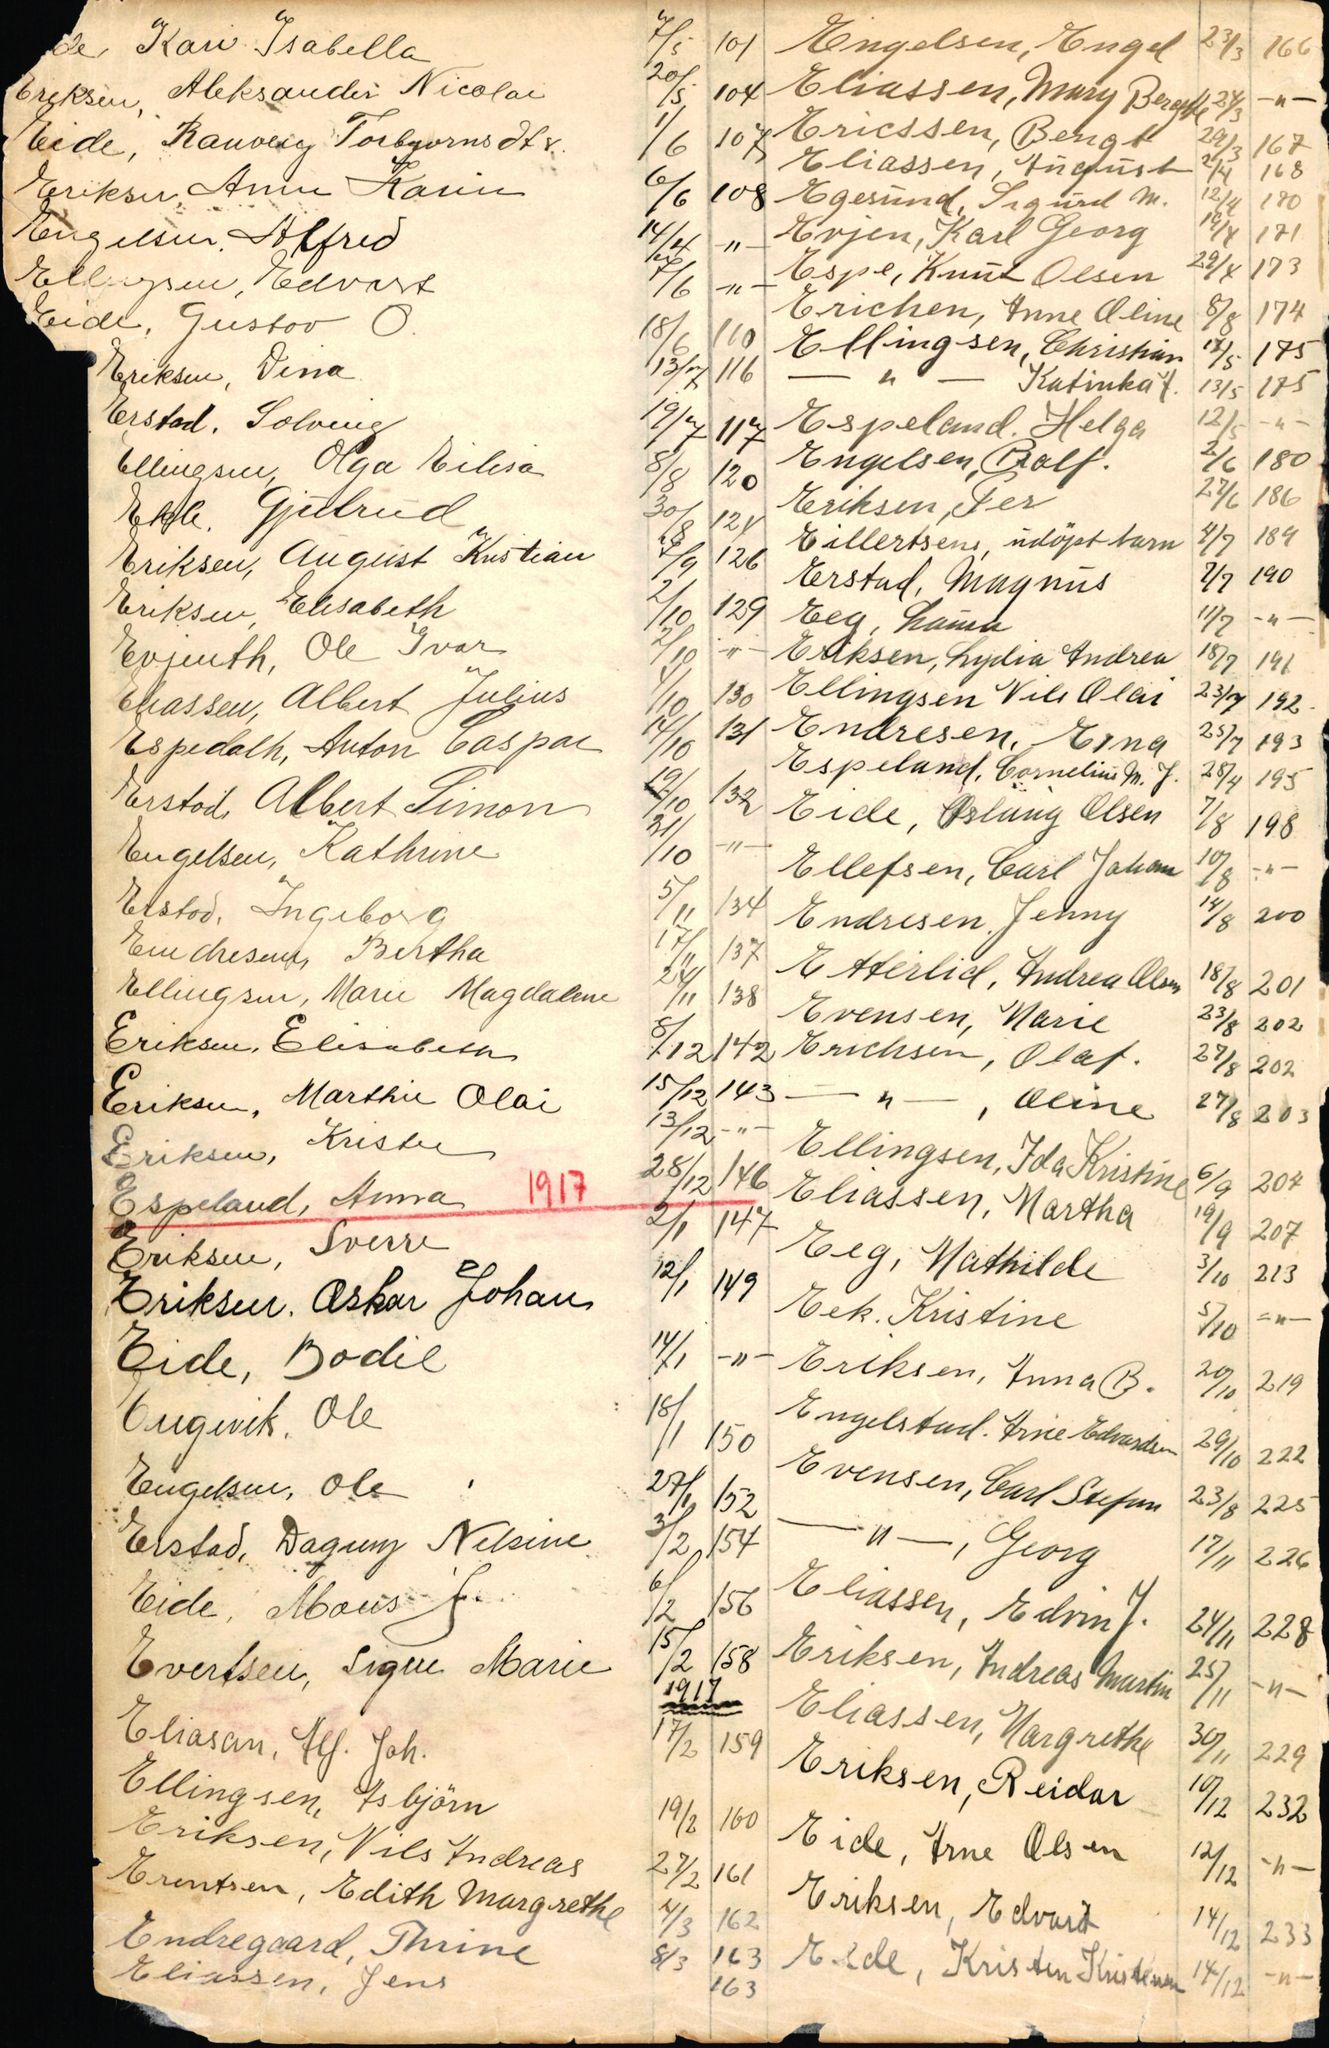 de, Kari Isabella 7/5 101
Eriksen, Aleksander Nicolai 20/5 104
Eide, Rauveig Torbjørnsdtr. 1/6 107
Eriksen, Anna Karin 6/6 108
Engelsen, Alfred 14/4 -"-
Ellingsen, Edvart 7/6 -"-
Eide, Gustav O. 18/6 110
Eriksen, Dina 13/7 116
Erstad, Solveig 19/7 117
Ellingsen, Olga Elisa 8/8 120
Ekle, Gjertrud 30/8 124
Eriksen, August Kristian 7/9 126
Eriksen, Elisabeth 2/10 129
Evjenth, Ole Ivar 2/10 -"-
Eliassen, Albert Julius 4/10 130
Espedalh, Anton Caspar 14/10 131
Erstad, Albert Simon 19/10 132
Engelsen, Kathrine 31/10 -"-
Erstad, Ingeborg 5/11 134
Emdresen, Bertha 17/11 137
Ellingsen, Marie Magdalene 24/11 138
Eriksen, Elisabeth 8/12 142
Eriksen, Marthin Olai 15/12 143
Eriksen, Kristen 13/12 -"-
Espeland, Anna 1917 28/12 146
Eriksen, Sverre 2/1 147
Eriksen, Oskar Johan 12/1 149
Eide, Bodil 14/1 -"-
Engevik, Ole 18/1 150
Engelsen, Ole 27/1 152
Erstad, Dagny Nelsine 3/2 154
Eide, Mons J. 6/2 156
Evertsen, Signe Marie 15/2 158
1917
Eliasen, Alf. Joh. 17/2 159
Ellingsen, Asbjörn 19/2 160
Eriksen, Nils Andreas 27/2 161
Erentsen, Edith Margrethe 4/3 162
Endregaard, Thrine 8/3 163
Eliassen, Jens 163
Engelsen, Engel 23/3 166
Eliassen, Mary Bergitte 24/3 -"-
Ericssen, Bengt 29/3 167
Eliassen, August 2/4 168
Egesund, Sigurd M. 12/4 170
Evjen, Karl Georg 19/4 171
Espe, Knut Olsen 29/4 173
Erichen, Anne Oline 8/8 174
Ellingsen, Christian 12/5 175
— " — Katinka J. 13/5 175
Espeland, Helga 12/5 -"-
Engelsen, Ralf. 2/6 180
Eriksen, Per 27/6 186
Eillertsens, udöpt barn 4/7 189
Erstad, Magnus 7/7 190
Eeg, Laura 11/7 -"-
Eriksen, Lydia Andrea 18/7 191
Ellingsen Nils Olai 23/7 192
Endresen, Erna 25/7 193
Espeland, Cornelius M. J. 28/4 195
Eide, Aslaug Olsen 7/8 198
Ellefsen, Carl Johan 10/8 -"-
Endresen, Jenny 14/8 200
Etterlid, Andrea Olsen 18/8 201
Evensen, Marie 23/8 202
Erichsen, Olaf. 27/8 202
— " —, Oline 27/8 203
Ellingsen, Ida Kristine 6/9 204
Eliassen, Martha 19/9 207
Eeg, Mathilde 3/10 213
Eek. Kristine 5/10 -"-
Eriksen, Anna B. 20/10 219
Engelstad. Arne Edvardsen 29/10 222
Evensen, Carl Stefan 23/8 225
— " —, Georg 17/11 226
Eliassen, Edvin J. 24/11 228
Eriksen, Andreas Martin 25/11 -"-
Eliassen, Margrethe 30/11 229
Eriksen, Reidar 10/12 232
Eide, Arne Olsen 12/12 -"-
Eriksen, Edvard 14/12 233
Eide, Kristen Kristensen 14/12 -"-